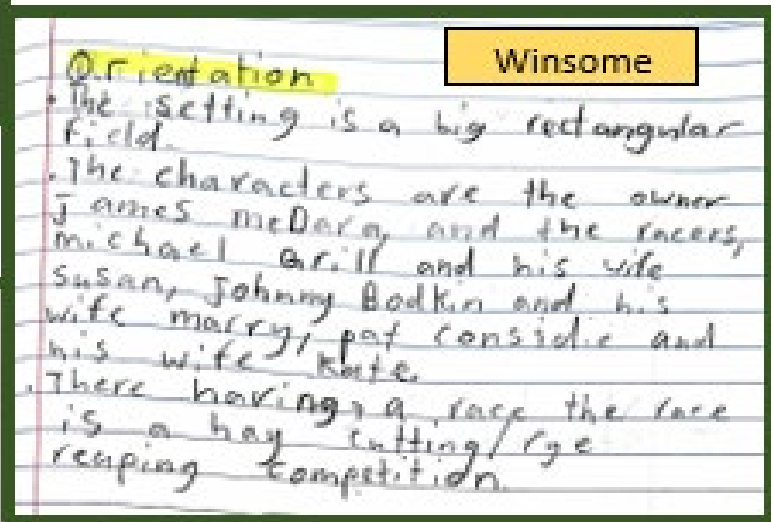 Winsome
Orientation
. The setting is a big rectangular
field.
. The characters are the owner
James mcDara, and the racers,
michael Grill and his wife
Susan, Johnny Bodkin and his
wife marry, pat Considie and
his wife Kate.
. There having a race the race
is a hay cutting/rye
reaping competition.